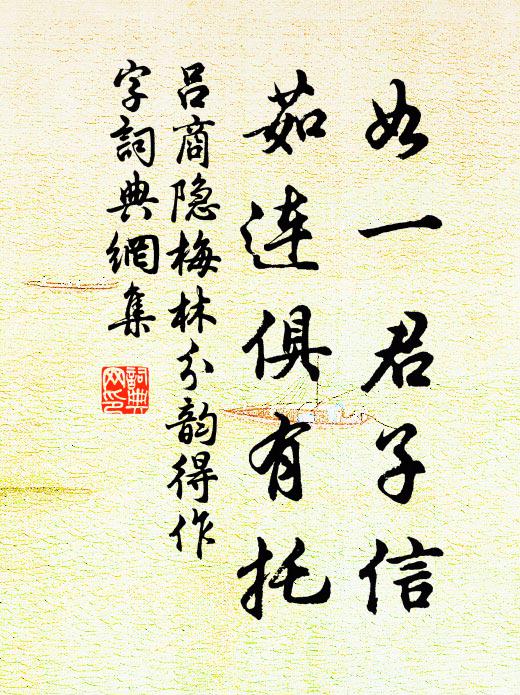 如一君子信
茹連俱有托
吕商隐梅林分韵得作
字詞典網集
詞典
网印